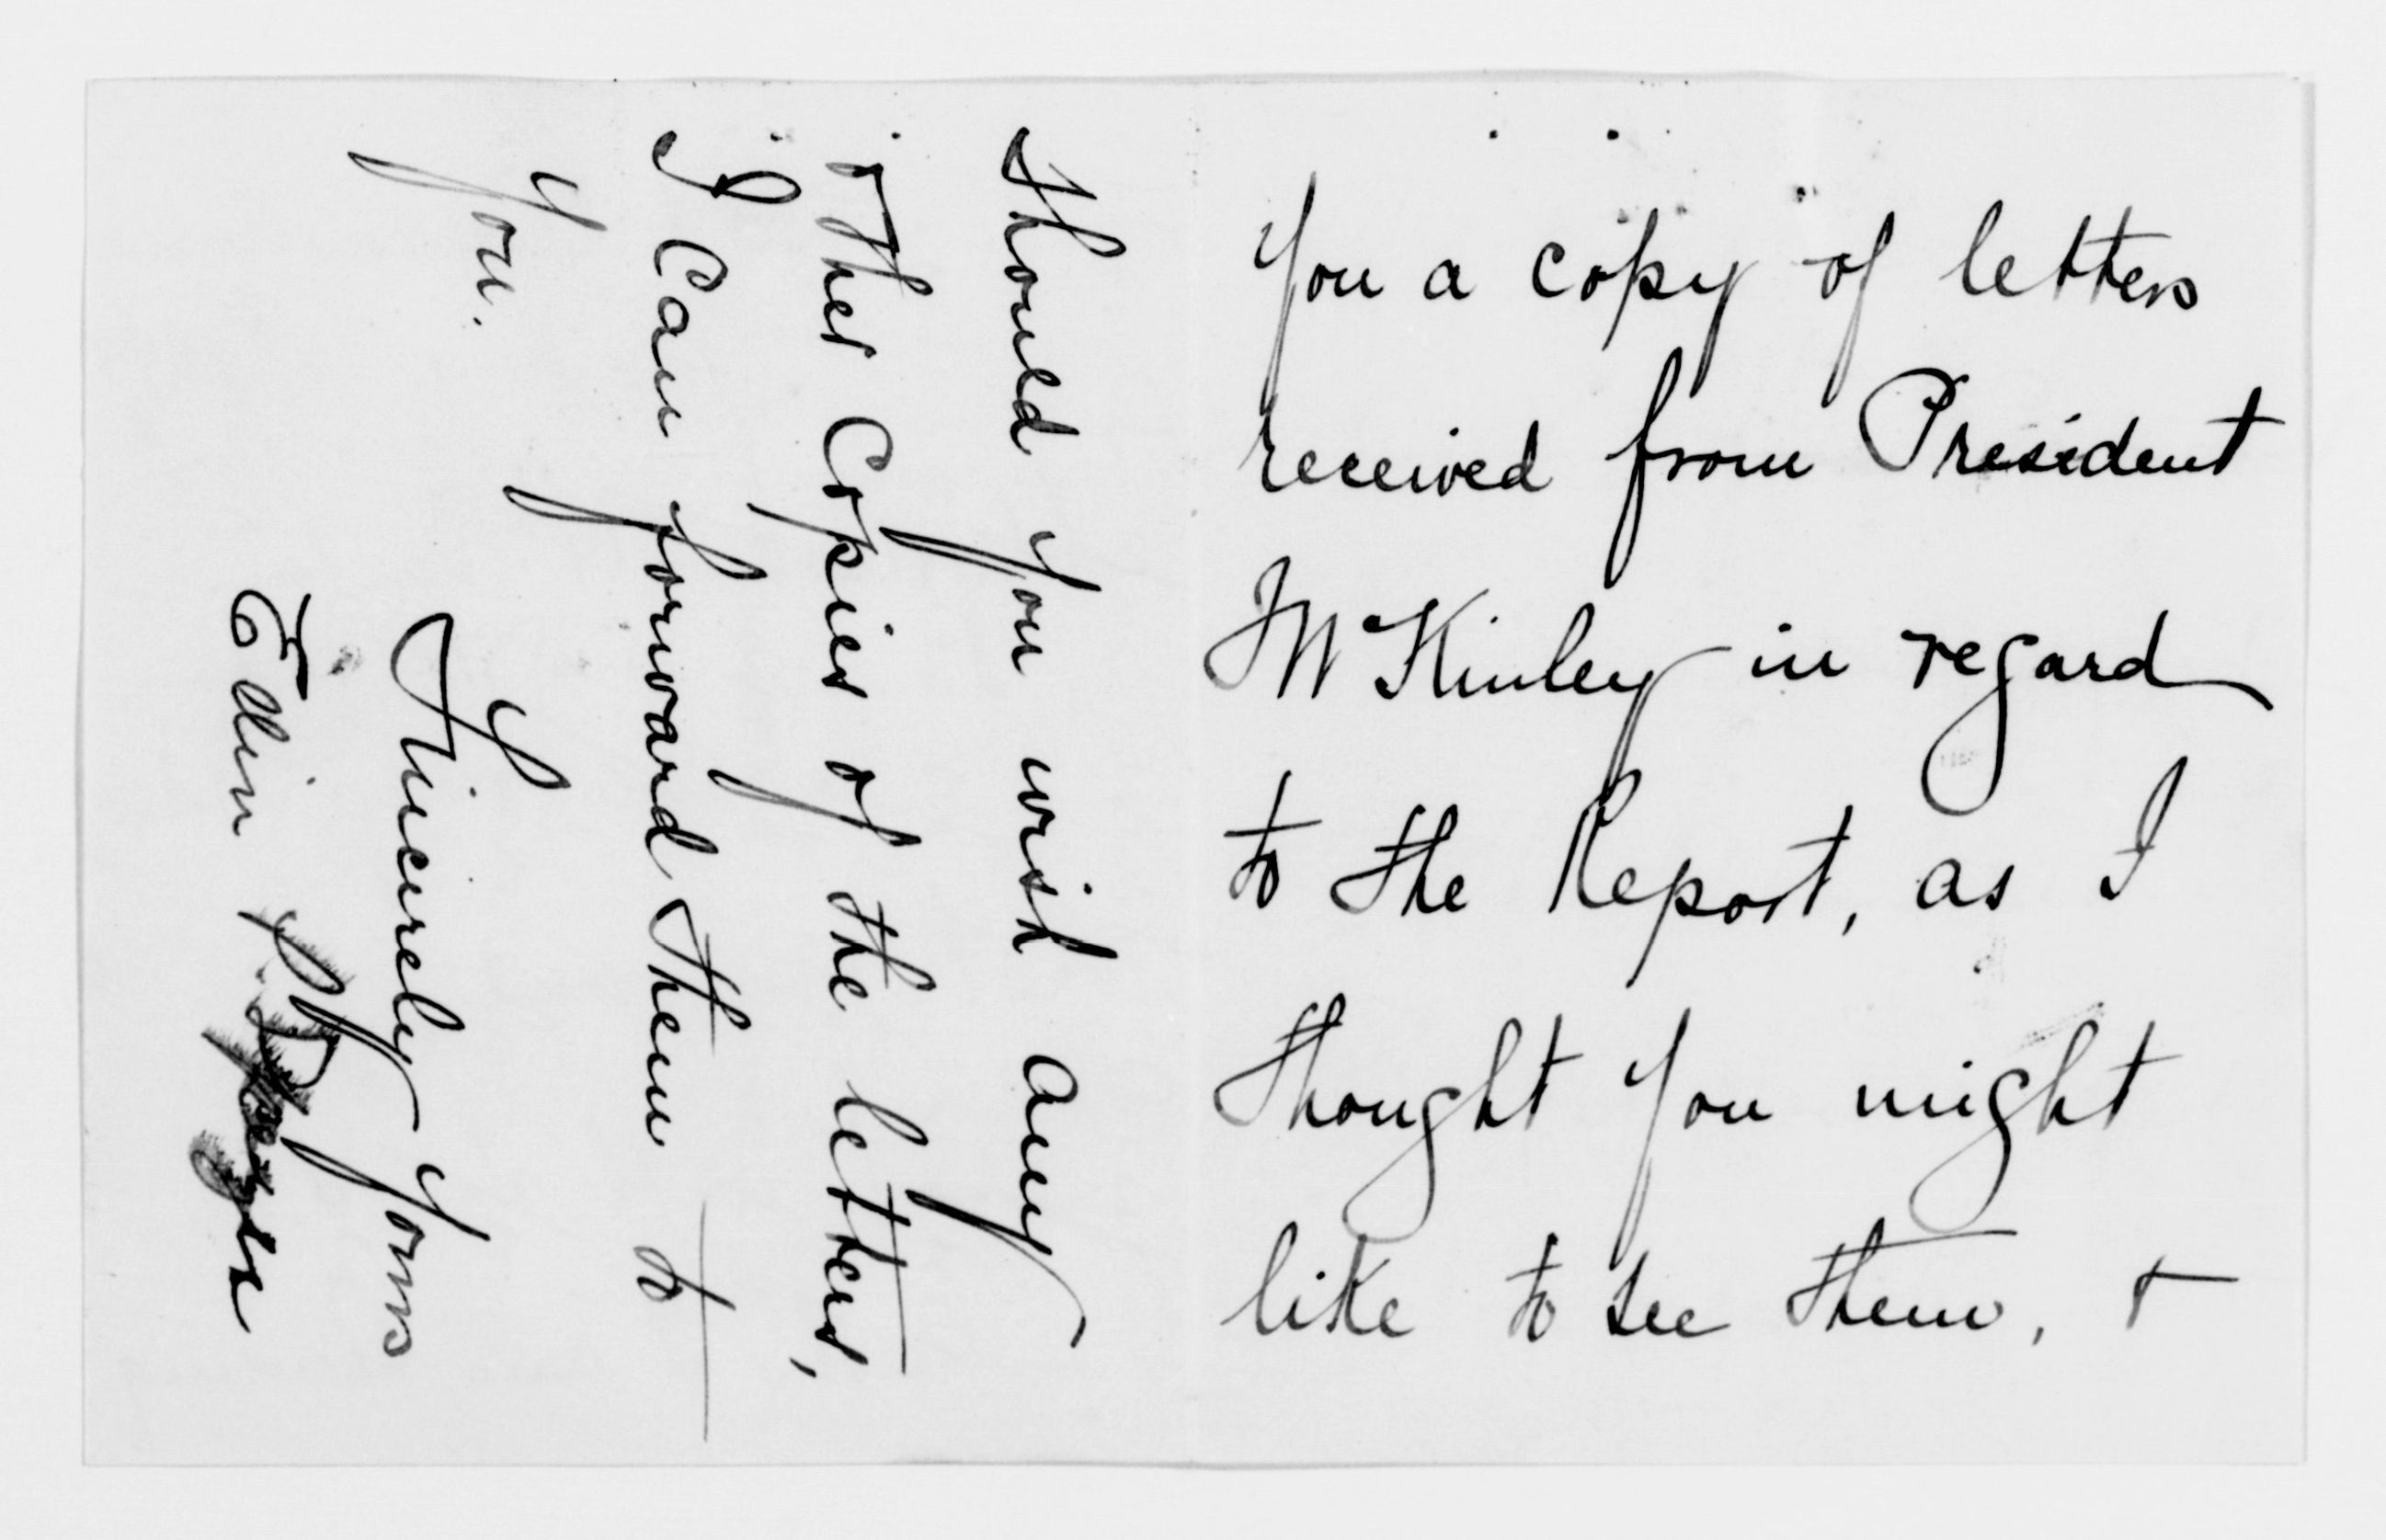 you a copy of letters
received from President
McKinley in regard
to the Report, as I
thought you might
like to see them, +
should you wish any
other copies of the letters,
I can forward them to
you.
Sincerely yours